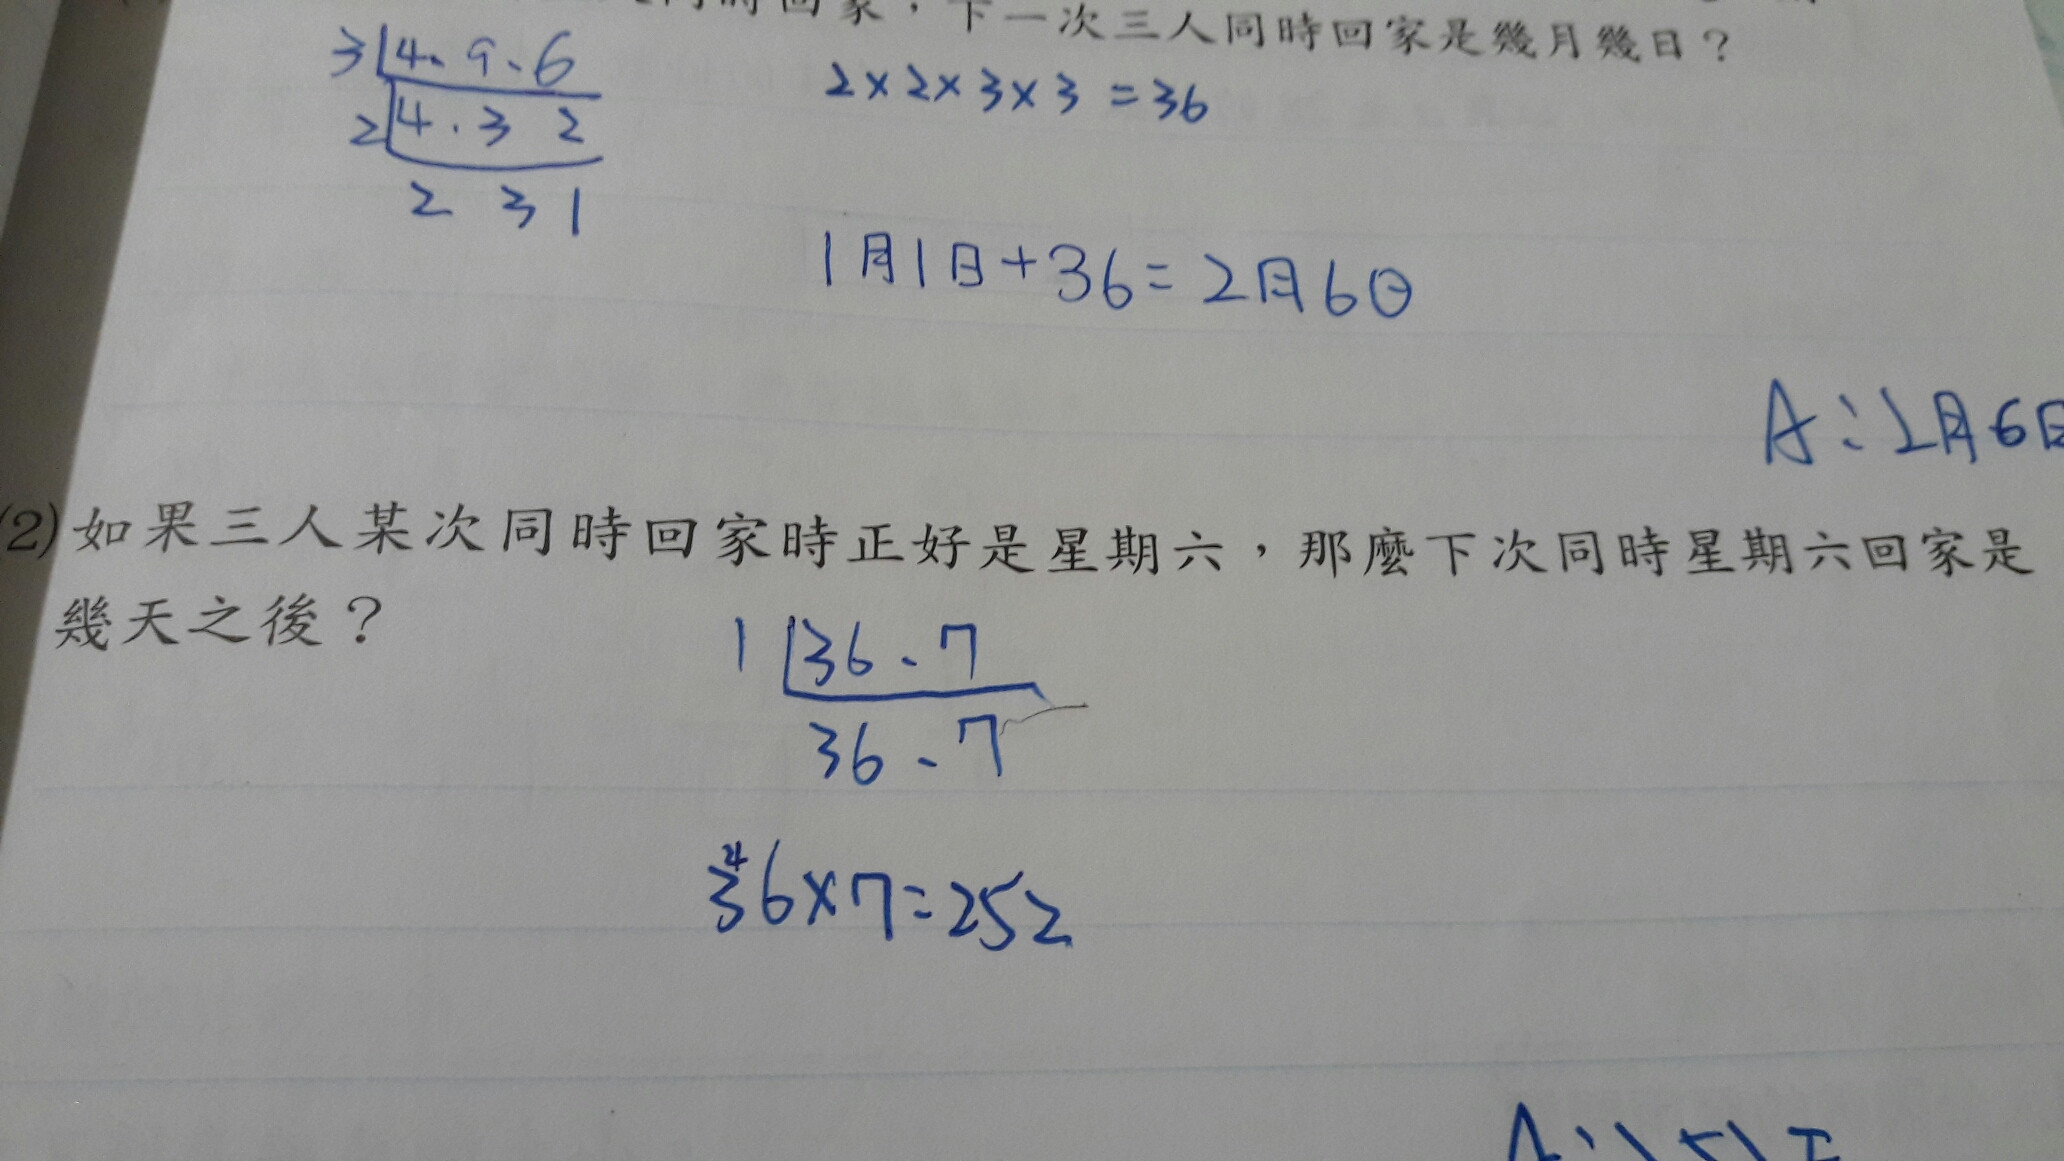 同時回家，下一次三人同時回家是幾月幾日？
3 4、9、6
2×2×3×3=36
2 4、3 2
2 3 1
1月1日+36=2月6日
A：2月6日
(2)如果三人某次同時回家時正好是星期六，那麼下次同時星期六回家是
幾天之後？
1 36、7
36、7
4
36×7=252